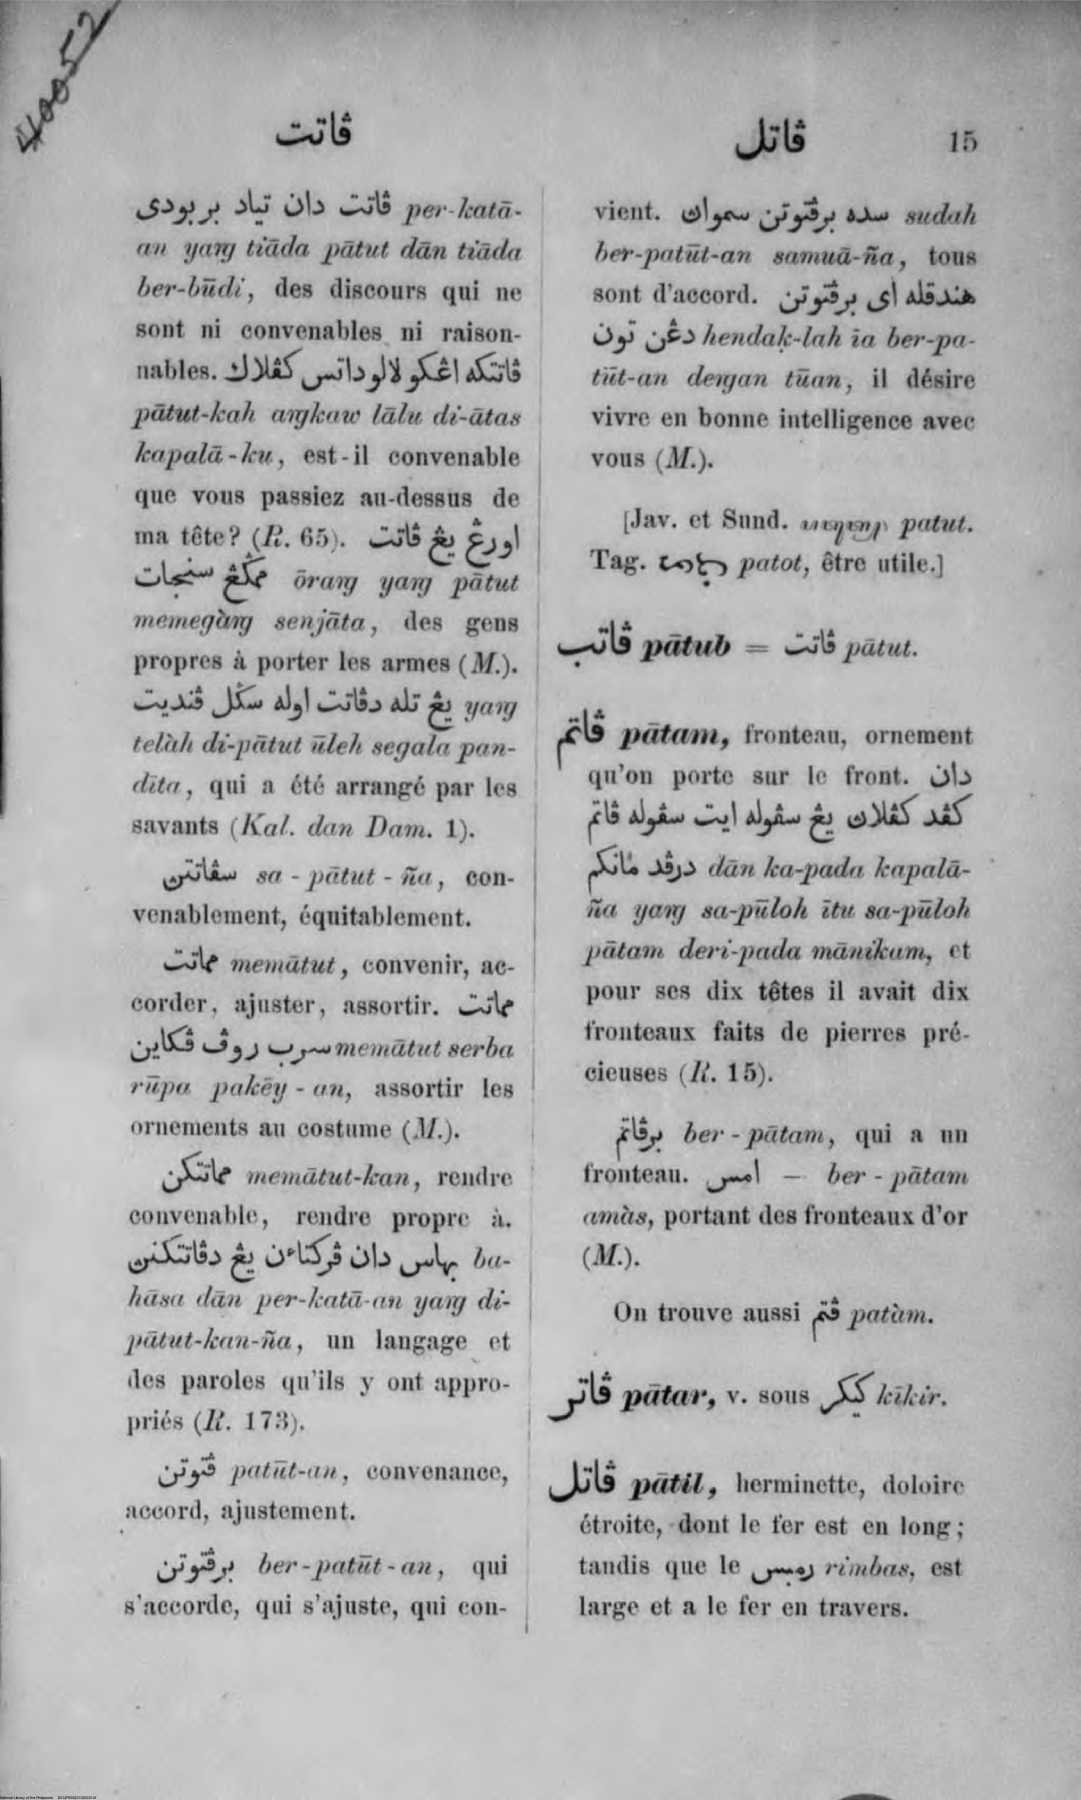 40052
ڤاتت
ڤاتل 15
ڤاتت دان تياد بر بودى per-katā-
an yaŋg tiāda pātut dān tiāda
ber-būdi, des discours qui ne
sont ni convenables ni raison-
nables. ڤاتتكه اڠكو لالو داتس كڤلاك
pātut-kah aŋgkaw lālu di-ātas
kapalā-ku, est-il convenable
que vous passiez au-dessus de
ma tête? (R. 65). اورڠ يڠ ڤاتت
ممڬڠ سنجات ōraŋg yaŋg pātut
memegàŋg senjāta, des gens
propres à porter les armes (M.).
يڠ تله دڤاتت اوله سڬل ڤنديت yaŋg
telàh di-pātut ūleh segala pan-
dīta, qui a été arrangé par les
savants (Kal. dan Dam. 1).
سڤاتتن sa-pātut-ña, con-
venablement, équitablement.
مماتت memātut, convenir, ac-
corder, ajuster, assortir. مماتت
سرب روڤ ڤكاين memātut serba
rūpa pakēy-an, assortir les
ornements au costume (M.).
مماتتكن memātut-kan, rendre
convenable, rendre propre à.
بهاس دان ڤركتاءن يڠ دڤاتتكنن ba-
hāsa dān per-katā-an yaŋg di-
pātut-kan-ña, un langage et
des paroles qu'ils y ont appro-
priés (R. 173).
ڤتوتن patūt-an, convenance,
accord, ajustement.
برڤتوتن ber-patūt-an, qui
s'accorde, qui s'ajuste, qui con-
vient. سده برڤتوتن سموان sudah
ber-patūt-an samuā-ña, tous
sont d'accord. هندقله اى برڤتوتن
دڠن تون hendaḳ-lah īa ber-pa-
tūt-an deŋgan tūan, il désire
vivre en bonne intelligence avec
vous (M.).
[Jav. et Sund. patut.
Tag. patot, être utile.]
ڤاتب pātub = ڤاتت pātut.
ڤاتم pātam, fronteau, ornement
qu'on porte sur le front. دان
كڤد كڤلان يڠ سڤوله ايت سڤوله ڤاتم
درڤد مانكم dān ka-pada kapalā-
ña yaŋg sa-pūloh ītu sa-pūloh
pātam deri-pada mānikam, et
pour ses dix têtes il avait dix
fronteaux faits de pierres pré-
cieuses (R. 15).
برڤاتم ber-pātam, qui a un
fronteau. امس — ber-pātam
amàs, portant des fronteaux d'or
(M.).
On trouve aussi ڤتم patàm.
ڤاتر pātar, v. sous كيكر kīkir.
ڤاتل pātil, herminette, doloire
étroite, dont le fer est en long;
tandis que le رمبس rimbas, est
large et a le fer en travers.